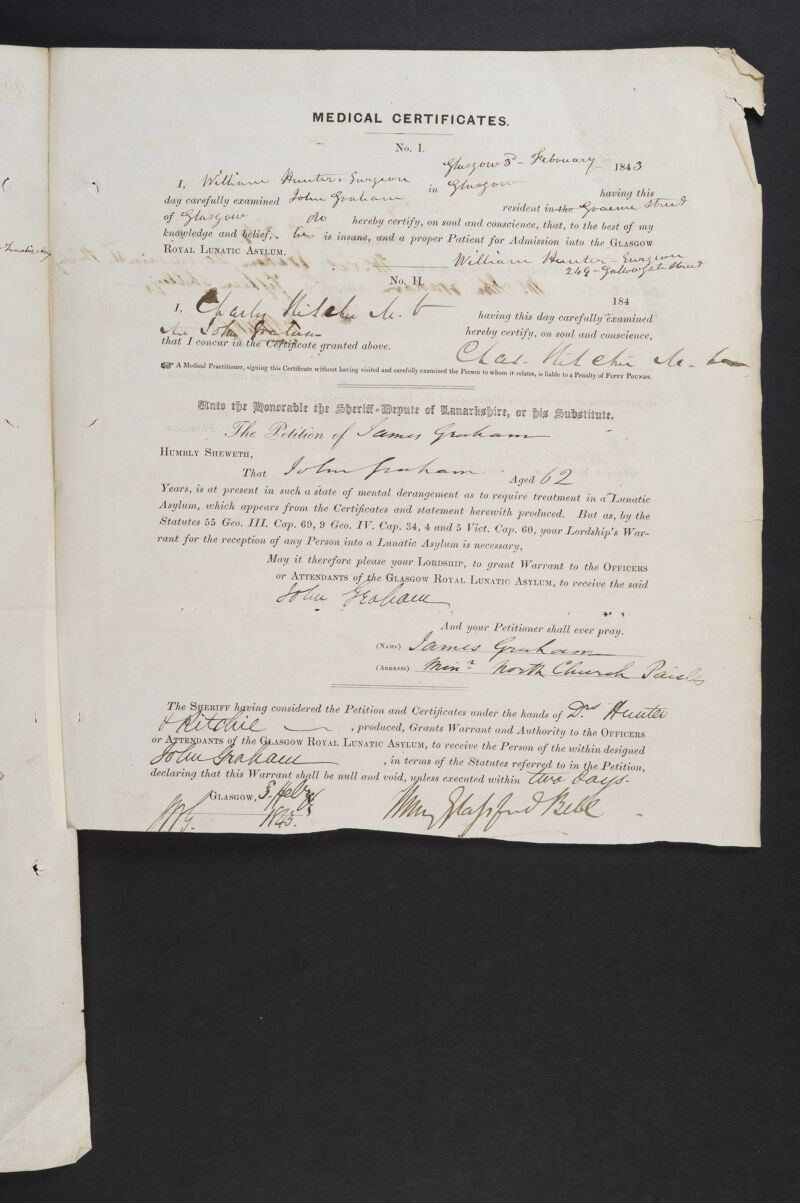 MEDICAL CERTIFICATES.
No. I.
Glasgow 3d February 1843
I, William Hunter, Surgeon in Glasgow having this
day carefully examined John Graham resident in the Graeme Street
of Glasgow do hereby certify, on soul and conscience, that, to the best of my
knowledge and belief, he is insane, and a proper Patient for Admission into the GLASGOW
ROYAL LUNATIC ASYLUM.
William Hunter - Surgeon
249 - Gallowgate Street
No. II.
184
I, Charles Ritchie M. D having this day carefully examined
Mr John Graham hereby certify, on soul and conscience,
that I concur in the Certificate granted above.
Chas. Ritchie M.
☞ A Medical Practitioner, signing this Certificate without having visited and carefully examined the Person to whom it relates, is liable to a Penalty of FIFTY POUNDS.
Unto the Honorable the Sheriff-Depute of Lanarkshire, or his Substitute.
The Petition of James Graham
HUMBLY SHEWETH,
That John Graham Aged 62
Years, is at present in such a state of mental derangement as to require treatment in a Lunatic
Asylum, which appears from the Certificates and statement herewith produced. But as, by the
Statutes 55 Geo. III. Cap. 69, 9 Geo. IV. Cap. 34, 4 and 5 Vict. Cap. 60, your Lordship's War-
rant for the reception of any Person into a Lunatic Asylum is necessary,
May it therefore please your LORDSHIP, to grant Warrant to the OFFICERS
or ATTENDANTS of the GLASGOW ROYAL LUNATIC ASYLUM, to receive the said
John Graham
And your Petitioner shall ever pray.
(NAME) James Graham
(ADDRESS) Minr North Church Paisley
The SHERIFF having considered the Petition and Certificates under the hands of Drs Hunter
& Ritchie , produced, Grants Warrant and Authority to the OFFICERS
or ATTENDANTS of the GLASGOW ROYAL LUNATIC ASYLUM, to receive the Person of the within designed
John Graham , in terms of the Statutes referred to in the Petition,
declaring that this Warrant shall be null and void, unless executed within two days.
GLASGOW, 3. Feby
1843.
Henry Glassford Bell